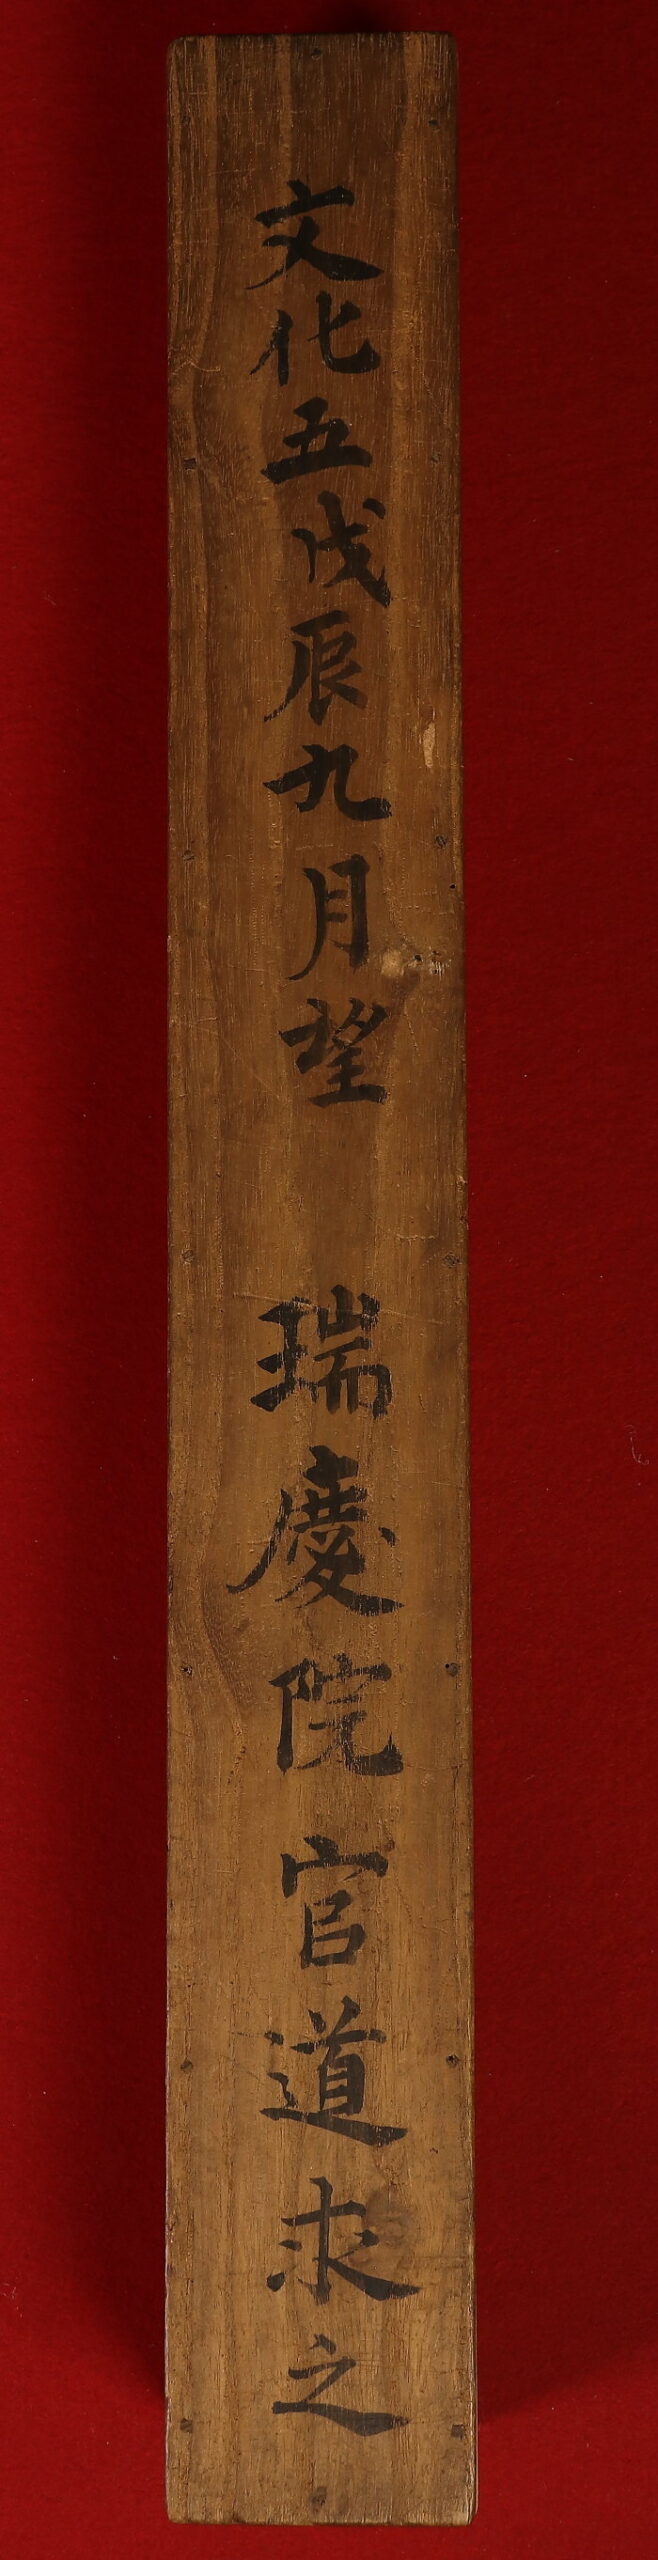 文化五戊辰九月望　瑞慶院官道求之